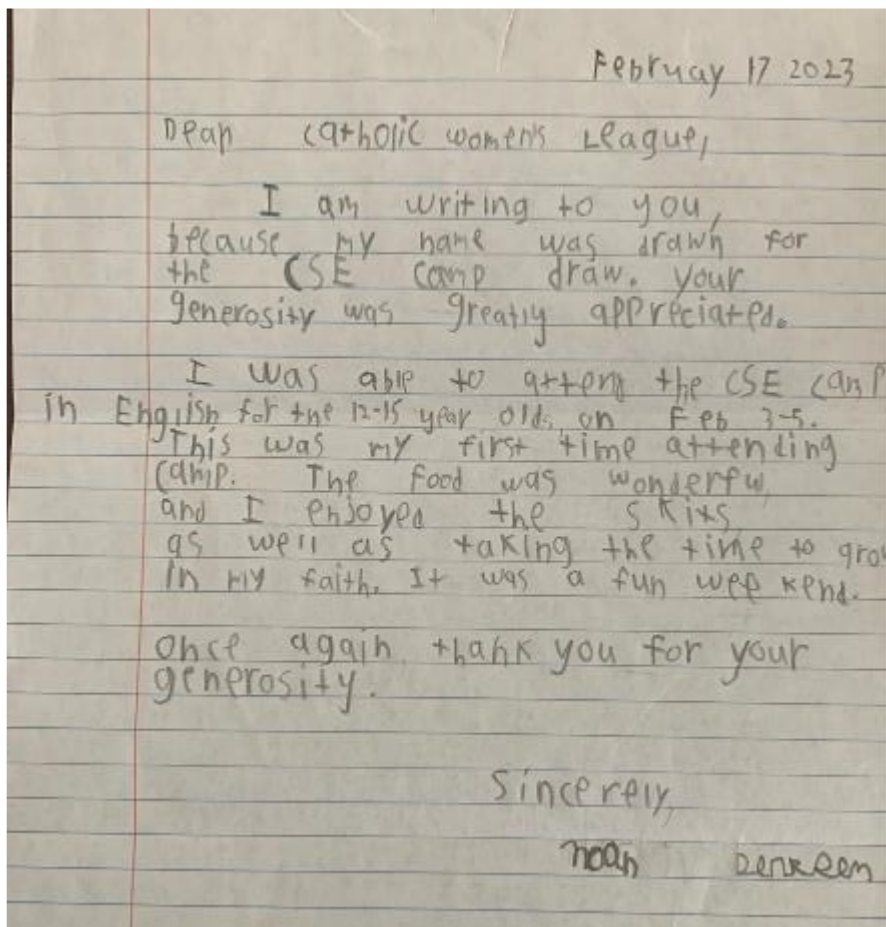 February 17 2023
Dear Catholic Women's League,
I am writing to you,
because my name was drawn for
the CSE camp draw. Your
generosity was greatly appreciated.
I was able to attend the CSE camp
in English for the 12-15 year olds, on Feb 3-5.
This was my first time attending
camp. The food was wonderful
and I enjoyed the skits,
as well as taking the time to grow
in my faith. It was a fun weekend.
Once again thank you for your
generosity.
Sincerely,
Noah